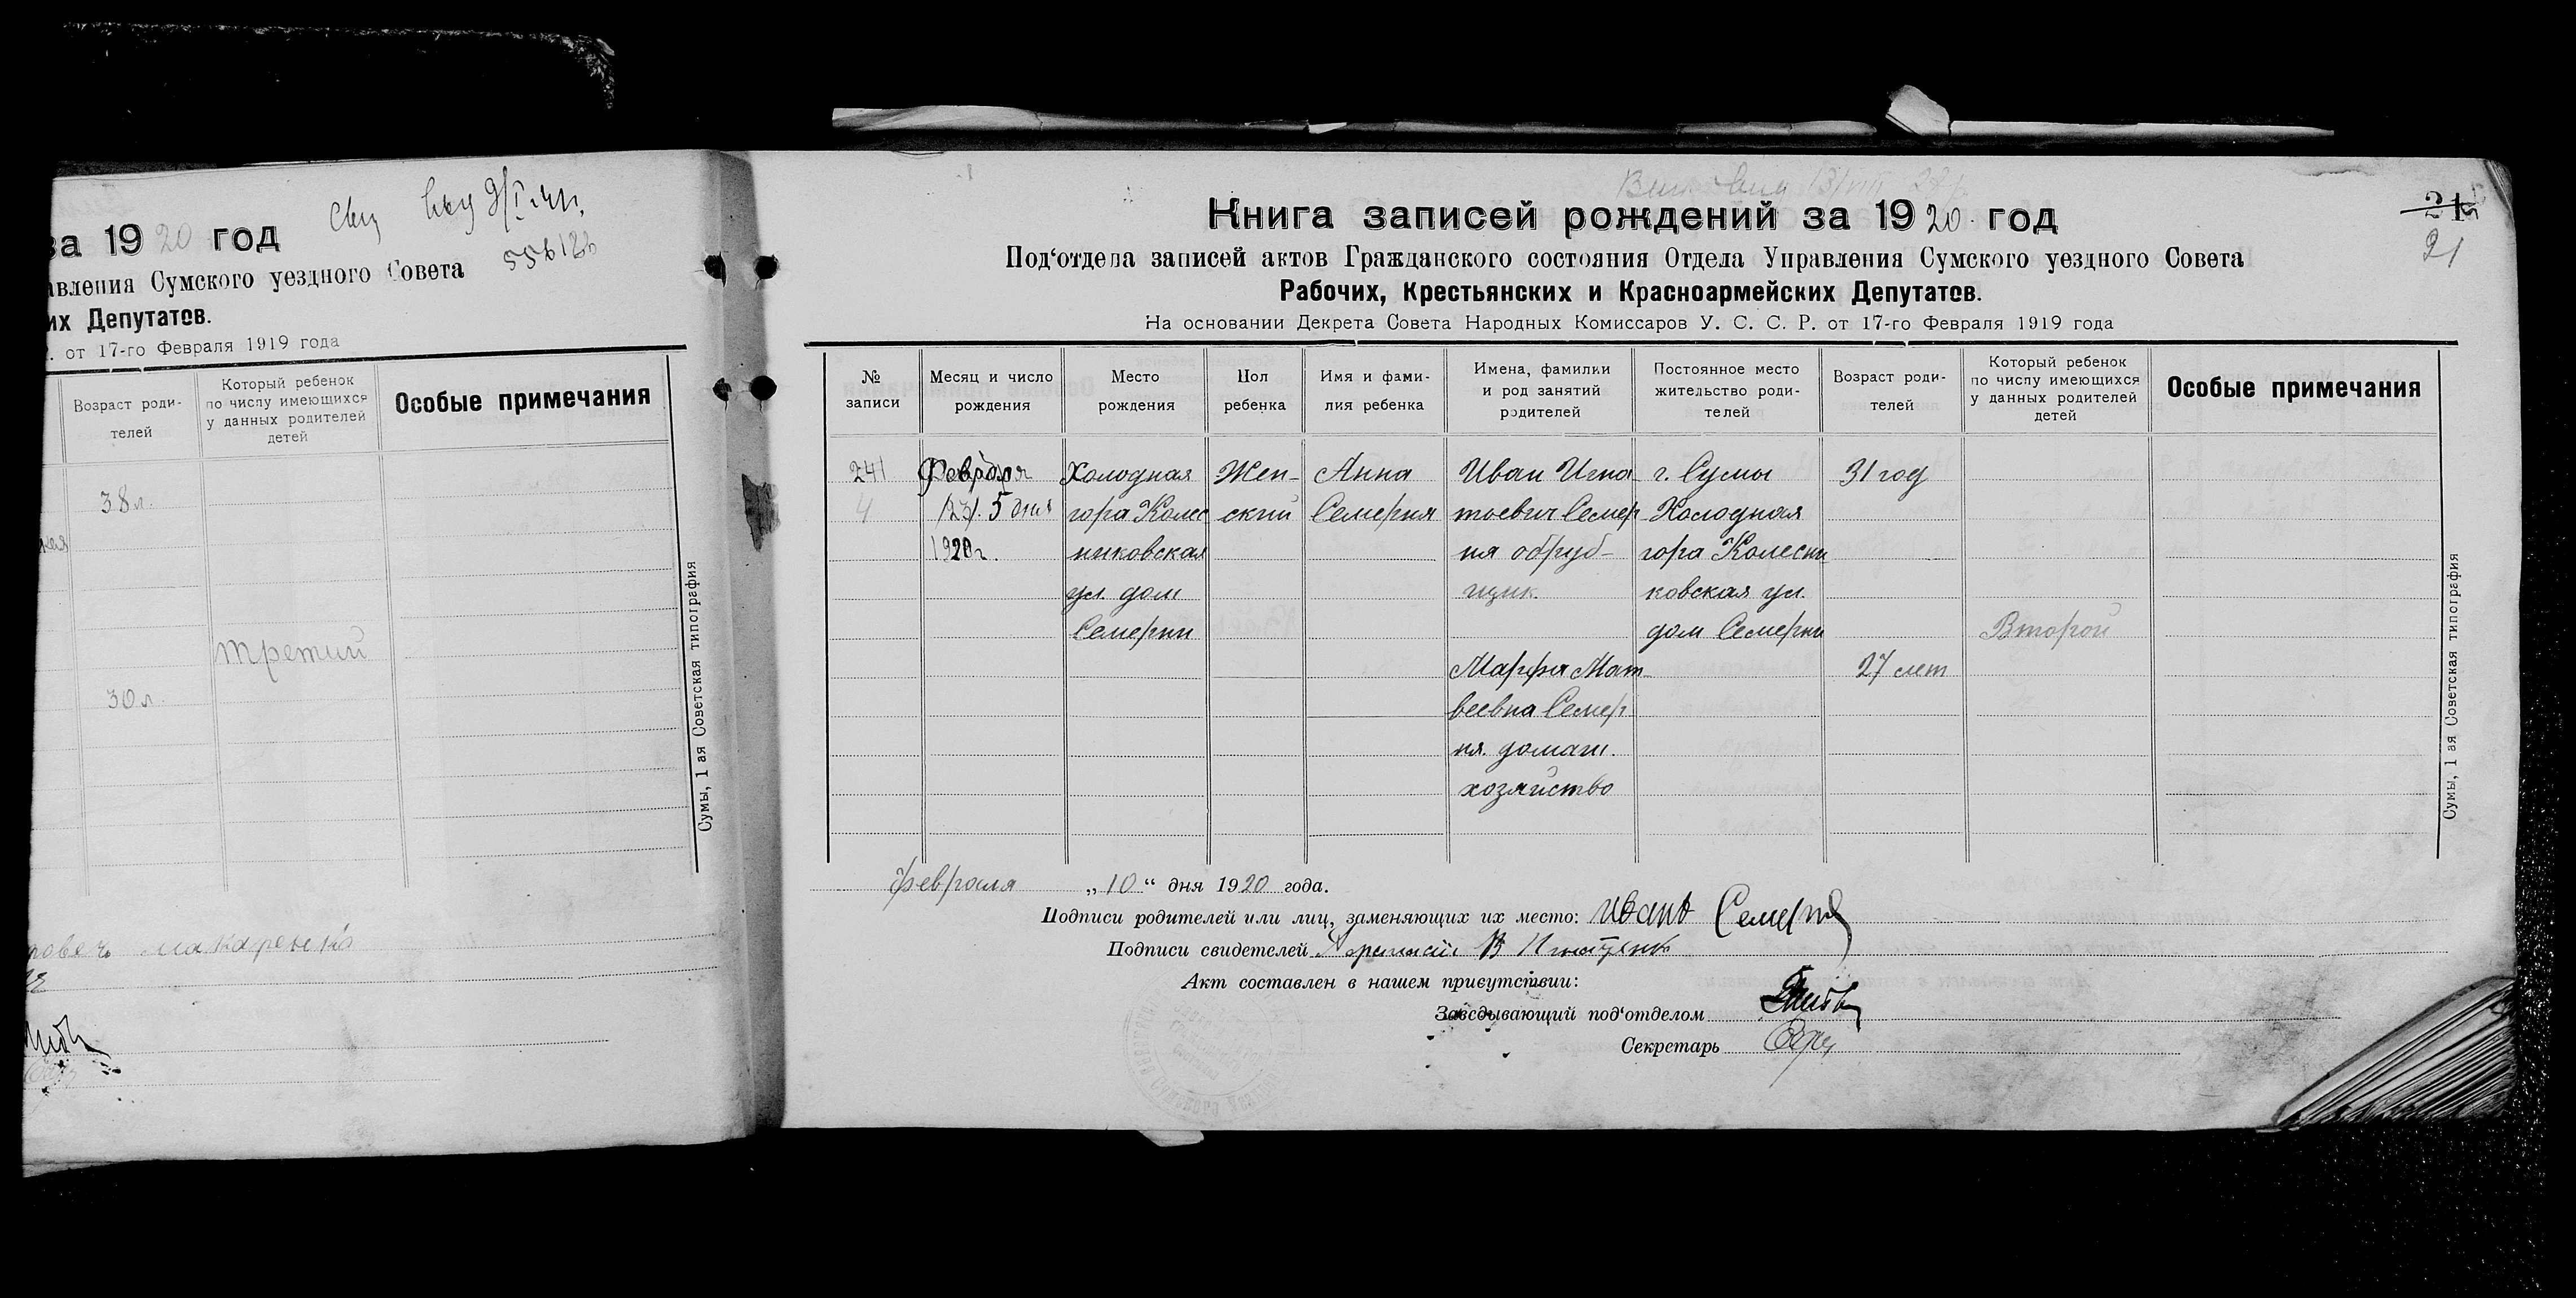 за 1920 год
авления Сумского уездного Совета
их Депутатов.
от 17-го Февраля 1919 года
Возраст роди-
телей
Который ребенок
по числу имеющихся
у данных родителей
детей
Особые примечания
38 л.
третий
30 л.
макаренко
Сумы, 1 ая Советская типография
21
Книга записей рождений за 1920 год
Под‘отдела записей актов Гражданского состояния Отдела Управления Сумского уездного Совета
Рабочих, Крестьянских и Красноармейских Депутатов.
На основании Декрета Совета Народных Комиссаров У. С. С. Р. от 17-го Февраля 1919 года
№
записи
Месяц и число
рождения
Место
рождения
Пол
ребенка
Имя и фами-
лия ребенка
Имена, фамилии
и род занятий
родителей
Постоянное место
жительство роди-
телей
Возраст роди-
телей
Который ребенок
по числу имеющихся
у данных родителей
детей
Особые примечания
241 Февраля Холодная Жен- Анна Иван Игна- г. Сумы 31 год
4 /23/. 5 дня гора Колес ский Семерня тьевич Семер Холодная
1920 г. никовская ня обруб- гора Колесни
ул. дом щик. ковская ул.
Семерни дом Семерни Второй
Марфа Мат 27 лет
веевна Семер
ня. домаш.
хозяйство
февраля „10“ дня 1920 года.
Подписи родителей или лиц, заменяющих их место: Иванъ Семерня
Подписи свидетелей
Акт составлен в нашем присутствии:
Заведывающий под‘отделом
Секретарь
Сумы, 1 ая Советская типография